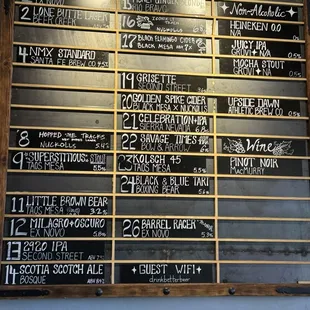 EX NOVO
2 LONE BUTTE LAGER
4 NMX STANDARD
SANTA FE BREW CO
8 HOPPED THE TRACKS
NUCKOLLS
9 "SUPERSTITIOUS" STOUT
TAOS MESA
11 LITTLE BROWN BEAR
TAOS MESA 3.2%
12 MILAGRO+OSCURO
EX NOVO
13 2920 IPA
SECOND STREET
14 SCOTIA SCOTCH ALE
BOSQUE
16
NUCKOLLS
17 BLACK FLAMINGO CIDER
BLACK MESA
19 GRISETTE
SECOND STREET
20 GOLDEN SPIKE CIDER
BLACK MESA X NUCKOLLS
21 CELEBRATION-IPA
SIERRA NEVADA
22 SAVAGE TIMES
BOW & ARROW
23 KOLSCH 45
TAOS MESA
24 BLACK & BLUE TAKI
BOXING BEAR
26 BARREL RACER
EX NOVO
GUEST WIFI
drinkbetterbeer
Non-Alcoholic
HEINEKEN 0.0
N/A
JUICY IPA
GRUVI N/A
MOCHA STOUT
GRUVI N/A
UPSIDE DAWN
ATHLETIC BREW CO
Wine
PINOT NOIR
MACMURRY